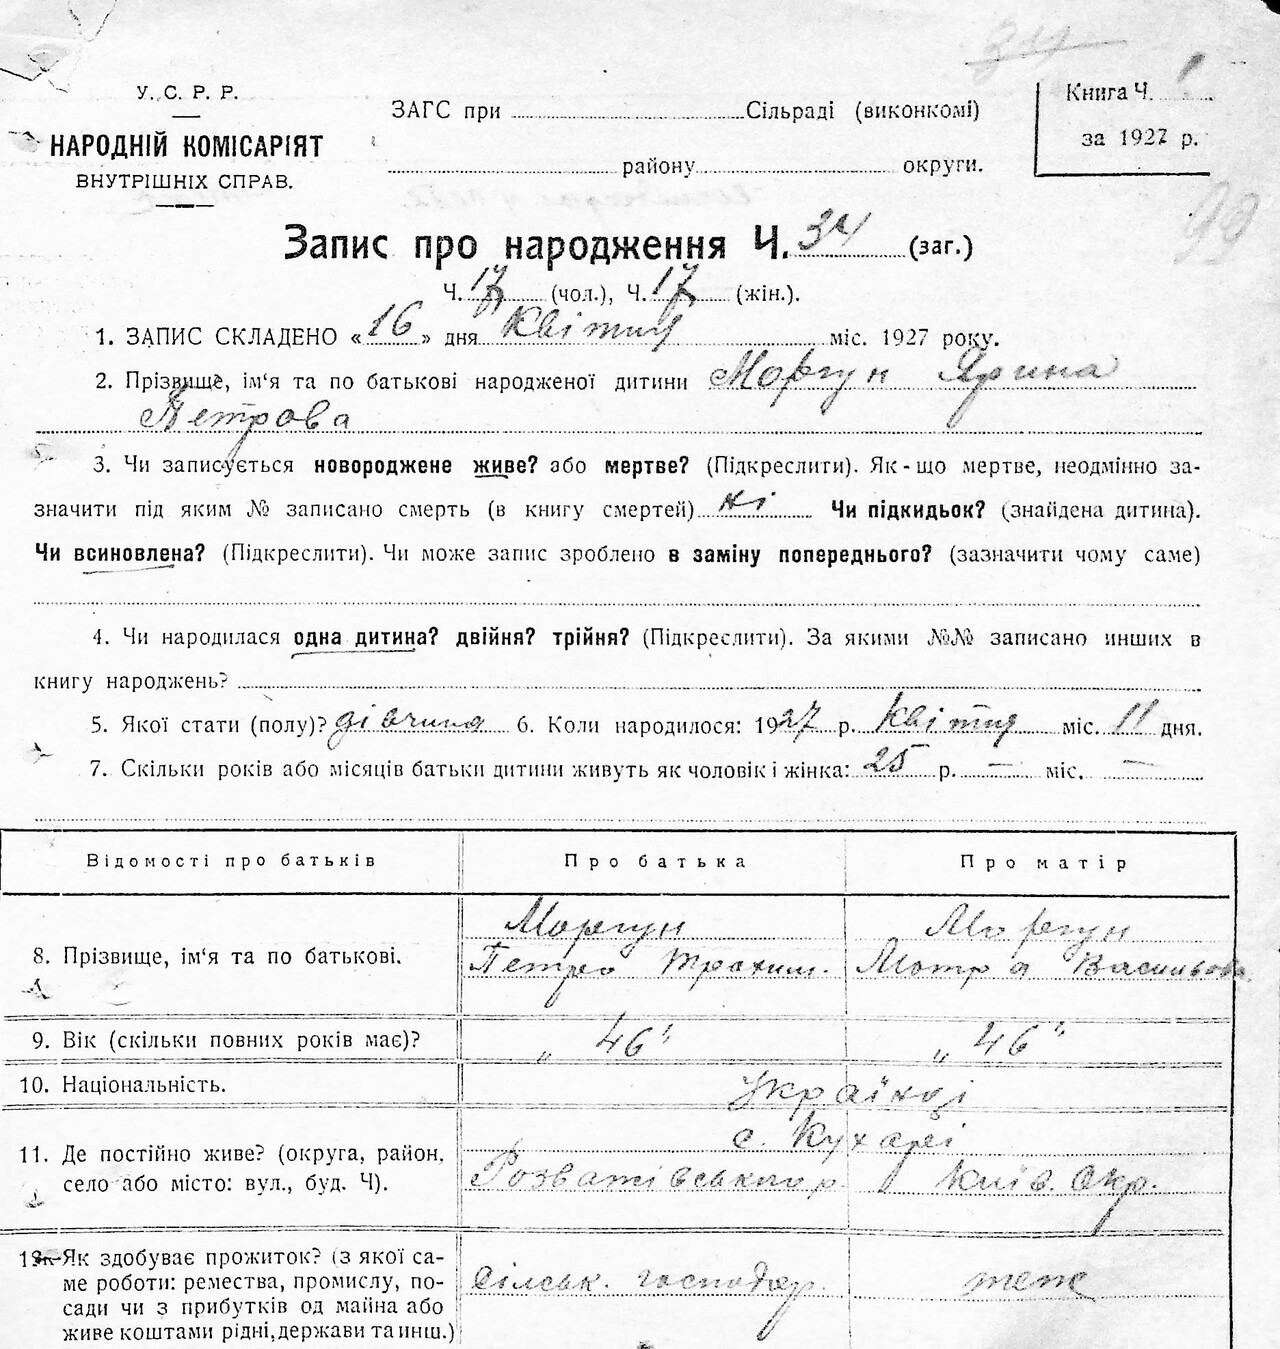 34
У. С. Р. Р.
НАРОДНІЙ КОМІСАРІЯТ
ВНУТРІШНІХ СПРАВ.
ЗАГС при Сільраді (виконкомі)
району округи.
Книга Ч. 1
за 1927 р.
99
Запис про народження Ч. 34 (заг.)
Ч. 17 (чол.), Ч. 17 (жін.).
1. ЗАПИС СКЛАДЕНО «16» дня Квітня міс. 1927 року.
2. Прізвище, ім‘я та по батькові народженої дитини Моргун Ярина
Петрова
3. Чи записується новороджене живе? або мертве? (Підкреслити). Як-що мертве, неодмінно за-
значити під яким № записано смерть (в книгу смертей) ні Чи підкидьок? (знайдена дитина).
Чи всиновлена? (Підкреслити). Чи може запис зроблено в заміну попереднього? (зазначити чому саме)
4. Чи народилася одна дитина? двійня? трійня? (Підкреслити). За якими №№ записано инших в
книгу народжень?
5. Якої стати (полу)? дівчина 6. Коли народилося: 1927 р. Квітня міс. 11 дня.
7. Скільки років або місяців батьки дитини живуть як чоловік і жінка: 25 р. — міс. —
Відомості про батьків Про батька Про матір
8. Прізвище, ім‘я та по батькові. Моргун Петро Трохим. Моргун Мотря Васильова
9. Вік (скільки повних років має)? „ 46“ „ 46“
10. Національність. Українці
11. Де постійно живе? (округа, район, с. Кухарі
село або місто: вул., буд. Ч). Розважівського р. Київ. Окр.
12. Як здобуває прожиток? (з якої са-
ме роботи: ремества, промислу, по- Сільськ. господар. теж
сади чи з прибутків од майна або
живе коштами рідні, держави та инш.)